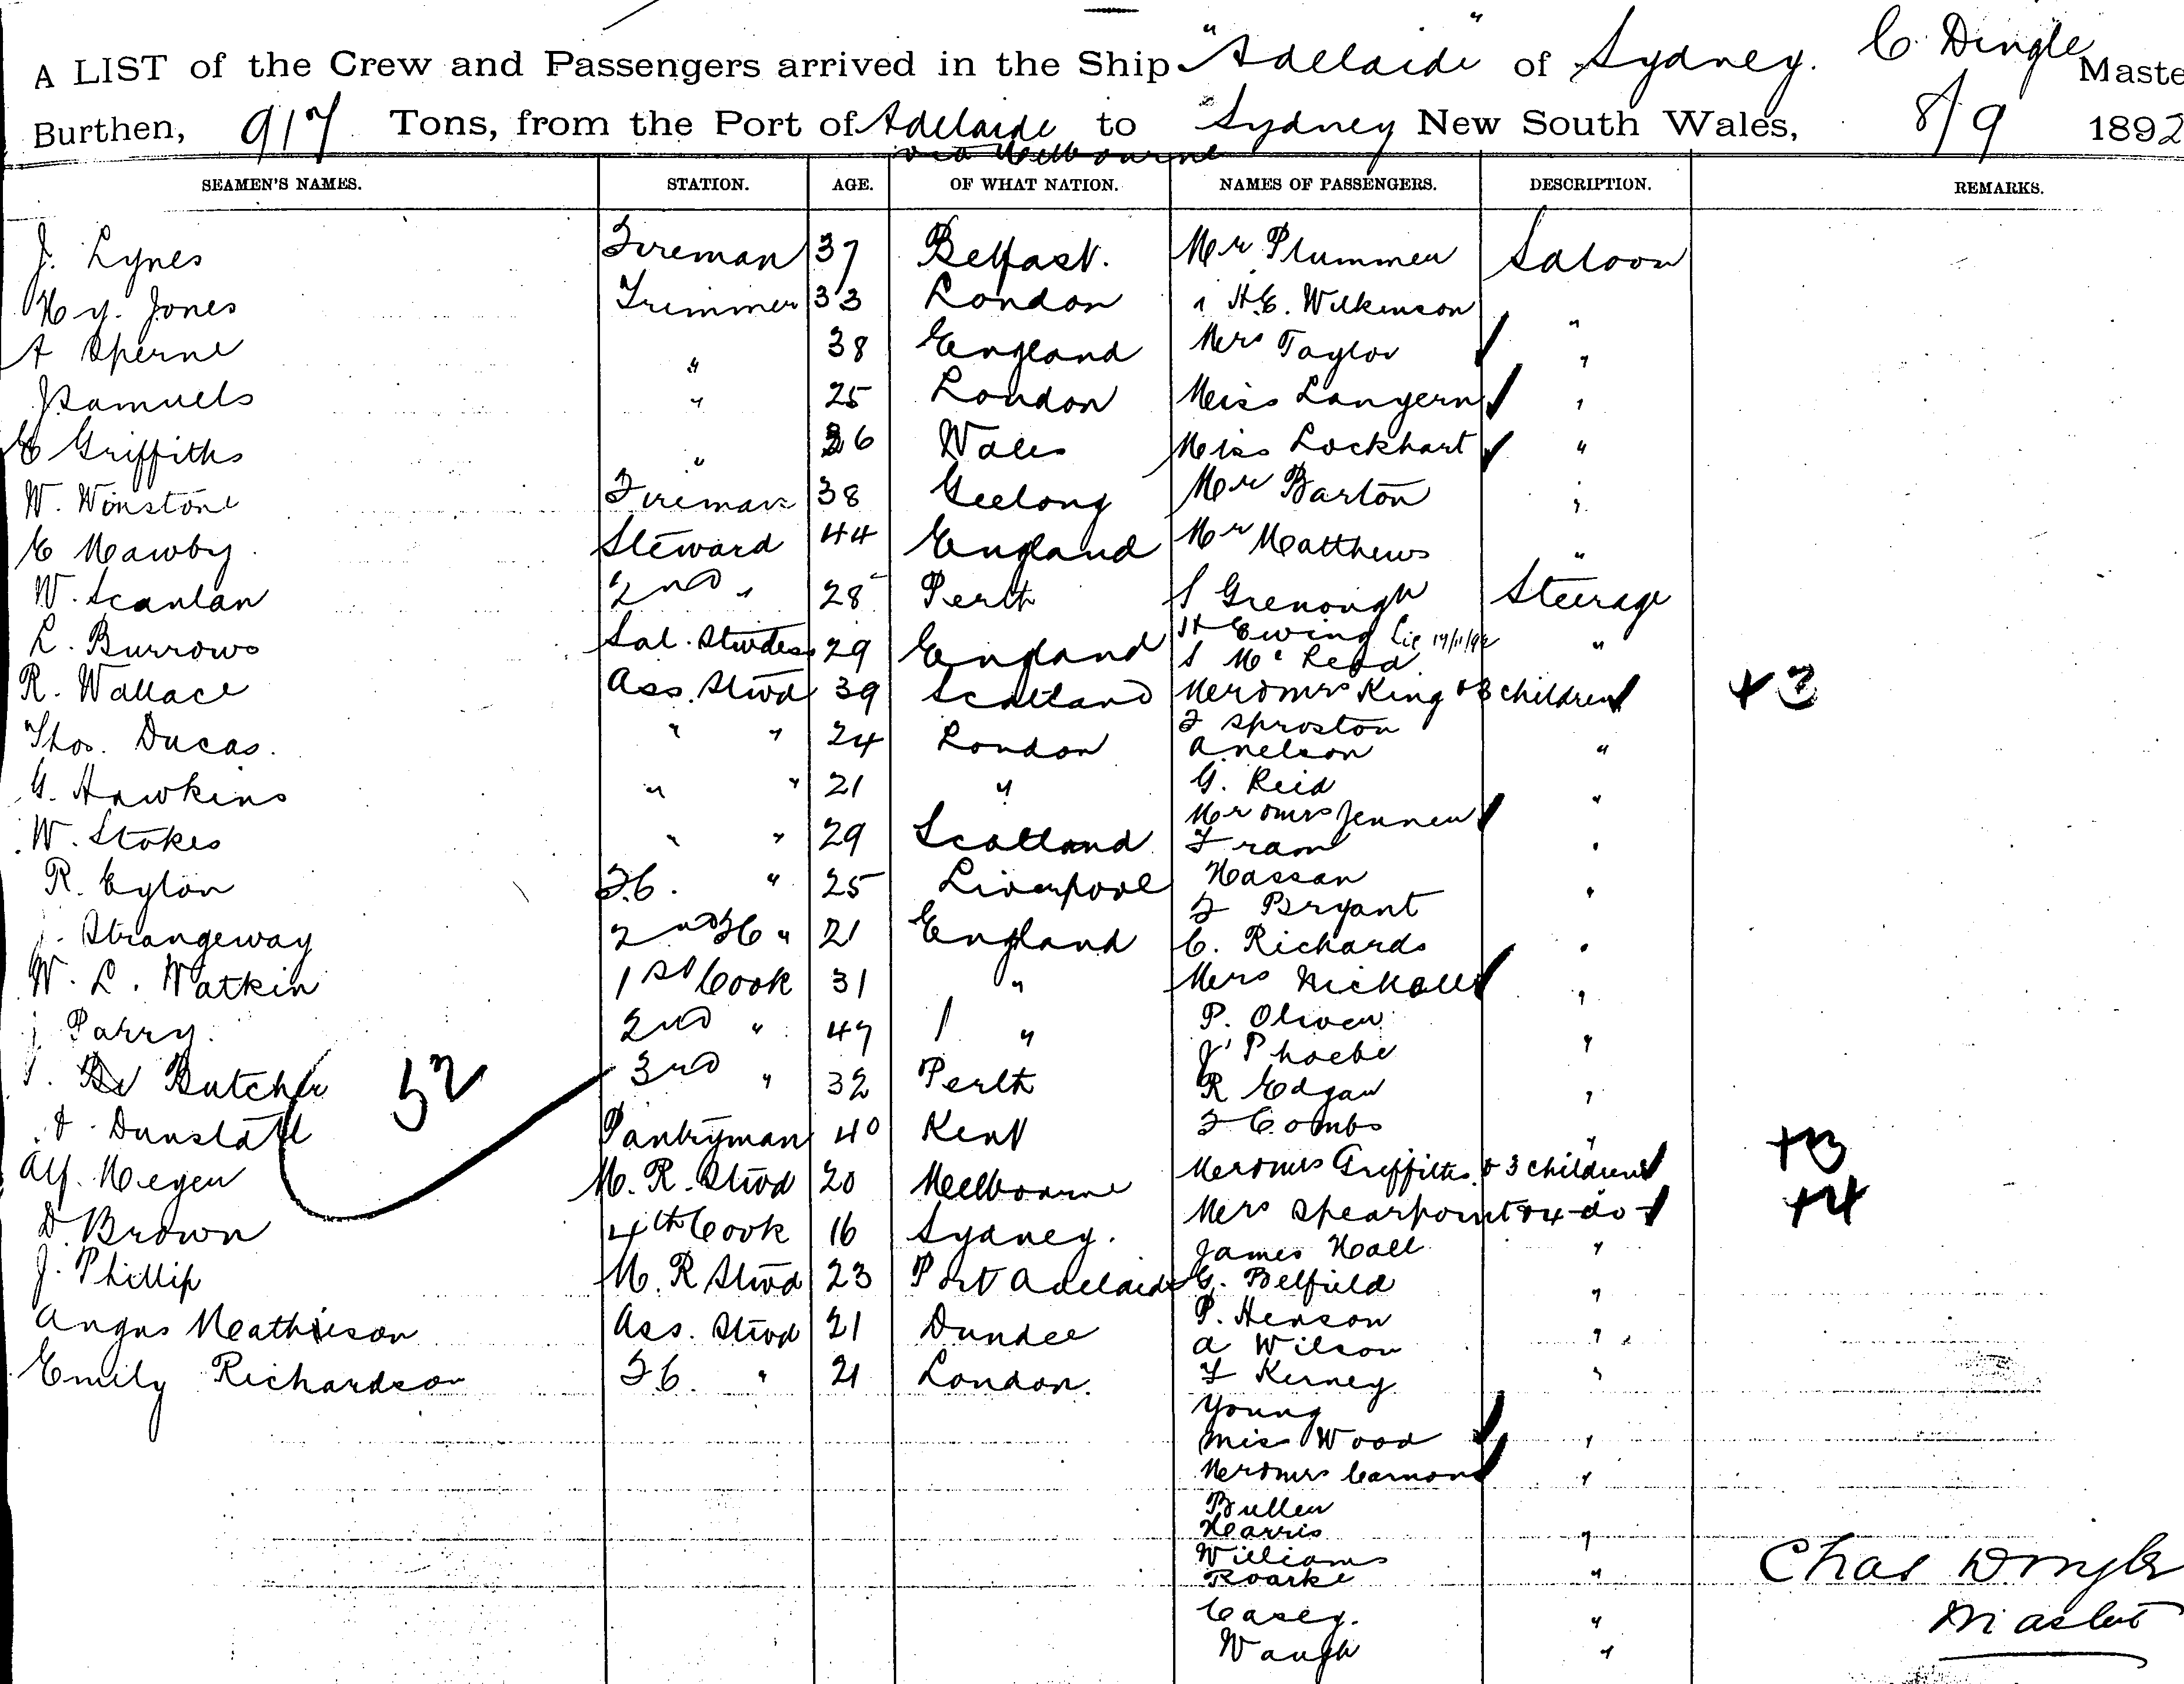 A LIST of the Crew and Passengers arrived in the Ship "Adelaide" of Sydney. C. Dingle Maste
Burthen, 917 Tons, from the Port of Adelaide to Sydney New South Wales, 8/9 1892
via Melbourne
SEAMEN'S NAMES. STATION. AGE. OF WHAT NATION. NAMES OF PASSENGERS. DESCRIPTION. REMARKS.
J. Lynes Fireman 37 Belfast. Mr Plummer Saloon
Hy. Jones Trimmer 33 London " H.E. Wilkinson "
A Sperne " 38 England Mrs Taylor "
J Samuels " 25 London Miss Langern "
E Griffiths " 36 Wales Miss Lockhart "
W. Winstone Fireman 38 Geelong Mr Barton "
E Mawby Steward 44 England Mr Matthews "
W. Scanlan 2nd " 28 Perth S Grenough Steerage
L. Burrows Sal. Stwdess 29 England H Ewing "
S McLeod
R. Wallace Ass. Stwd 39 Scotland Mr & Mrs King & 3 children +3
F Sproston
Thos. Ducas. " " 24 London A Nelson "
G. Hawkins " " 21 " G. Reid "
Mr & Mrs Jenner
W. Stokes " " 29 Scotland Fram "
Hassan
R. Eylon F.C. " 25 Liverpool F Bryant "
J. Strangeway 2nd FC " 21 England C. Richards "
W. L. Watkin 1st Cook 31 " Mrs Nicholls "
P. Oliver
J Parry. 2nd " 47 " J Phoebe "
Butcher 52 3rd " 32 Perth R Edgar "
F Combs
Dunstall Pantryman 40 Kent " +3
Alf. Meyer M. R. Stwd 20 Melbourne Mr & Mrs Griffiths & 3 children
D. Brown 4th Cook 16 Sydney. Mrs Spearpoint & 4 do +4
James Hall "
J. Phillip M. R Stwd 23 Port Adelaide G. Belfield "
P. Henson
Angus Mathieson Ass. Stwd 21 Dundee A Wilson "
Emily Richardson F.C. " 21 London. F Kerney "
Young
Miss Wood "
Mr & Mrs Carmon "
Buller
Harris "
Williams
Roarke "
Casey. "
Waugh "
Chas Dingle
Master